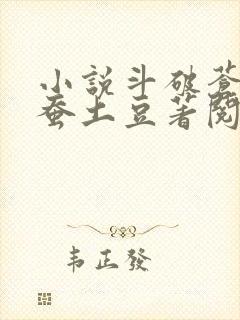 小説斗破蒼
蚕土豆著閱
韦正發